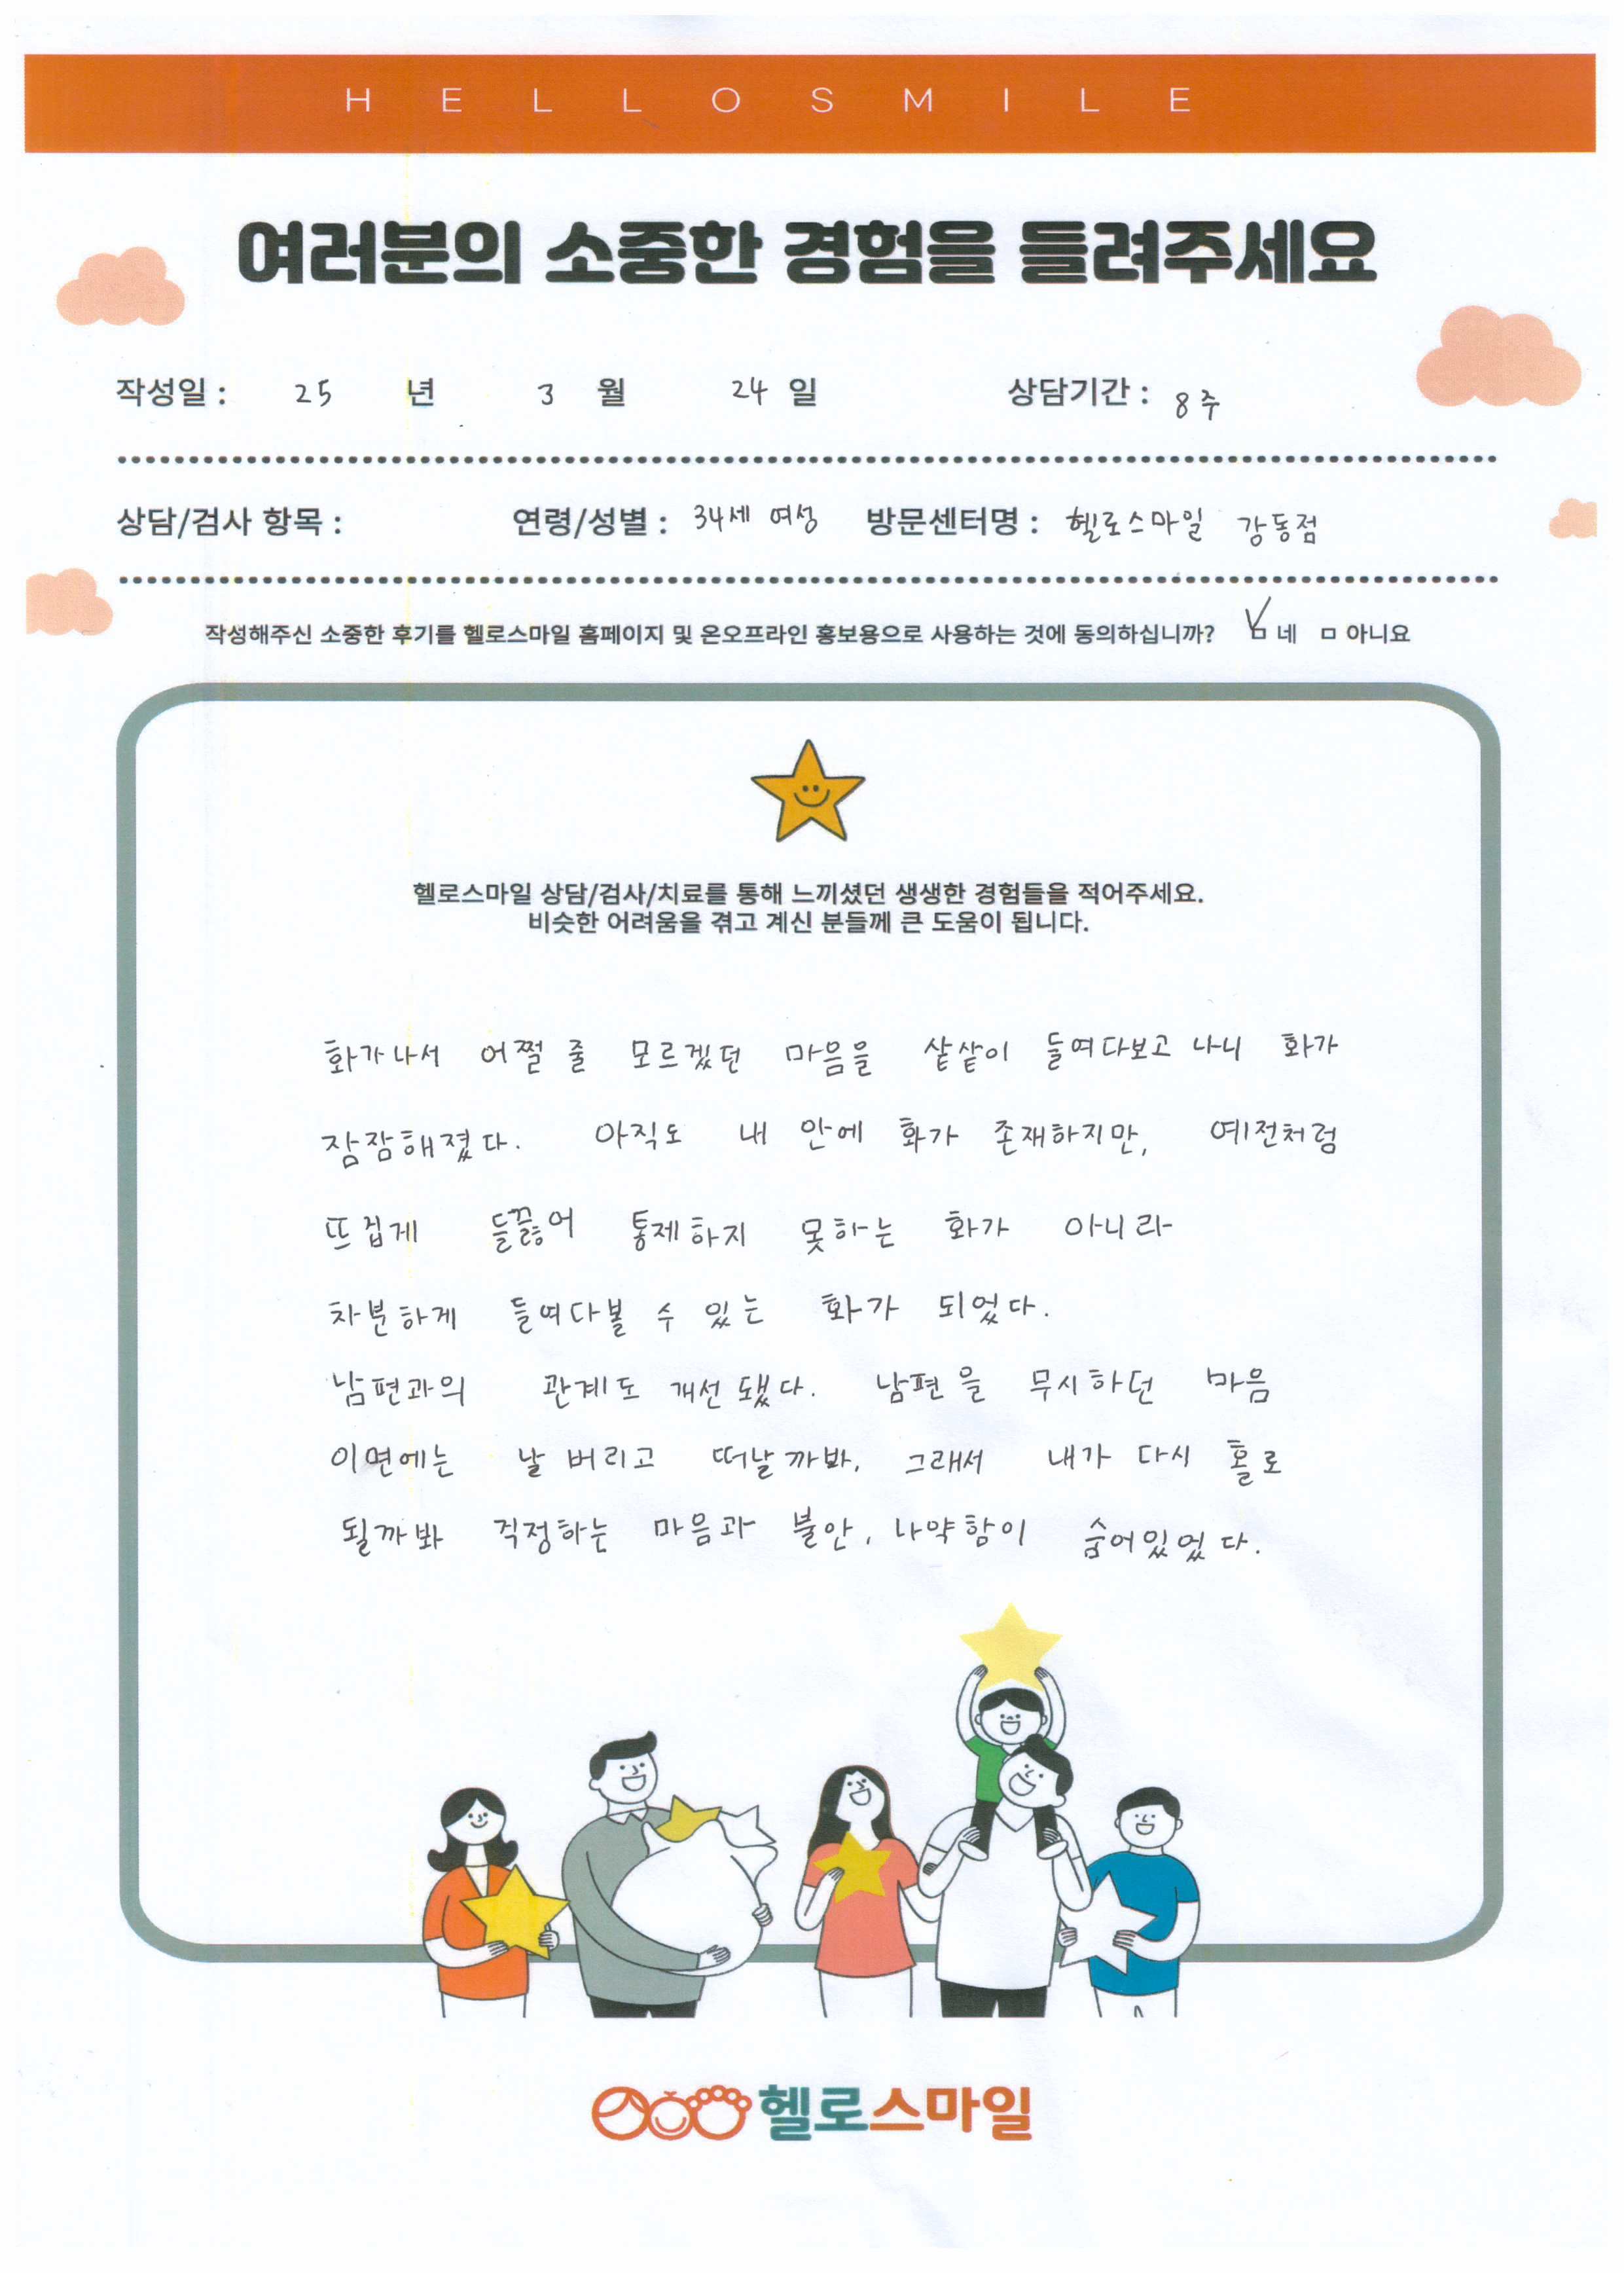 HELLOSMILE
여러분의 소중한 경험을 들려주세요
작성일 : 25 년 3 월 24 일 상담기간 : 8주
상담/검사 항목 : 연령/성별 : 34세 여성 방문센터명 : 헬로스마일 강동점
작성해주신 소중한 후기를 헬로스마일 홈페이지 및 온오프라인 홍보용으로 사용하는 것에 동의하십니까? 네 아니요
헬로스마일 상담/검사/치료를 통해 느끼셨던 생생한 경험들을 적어주세요.
비슷한 어려움을 겪고 계신 분들께 큰 도움이 됩니다.
화가나서 어쩔 줄 모르겠던 마음을 샅샅이 들여다보고 나니 화가
잠잠해졌다. 아직도 내 안에 화가 존재하지만, 예전처럼
뜨겁게 들끓어 통제하지 못하는 화가 아니라
차분하게 들여다볼 수 있는 화가 되었다.
남편과의 관계도 개선됐다. 남편을 무시하던 마음
이면에는 날 버리고 떠날까봐, 그래서 내가 다시 홀로
될까봐 걱정하는 마음과 불안, 나약함이 숨어있었다.
헬로스마일